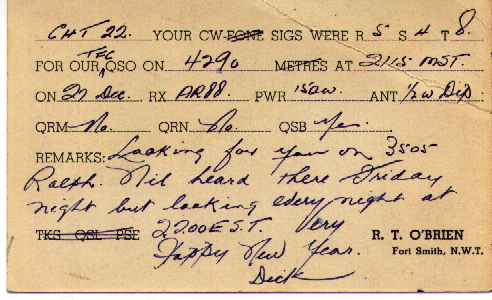 CHT 22. YOUR CW FONE SIGS WERE R 5 S 4 T 8.
FOR OUR TFC QSO ON 4290 METRES AT 2115 MST.
ON 27 Dec. RX AR88. PWR 150W. ANT 1/2 W Dip
QRM No. QRN No. QSB Yes.
REMARKS: Looking for you on 3505
Ralph. Nil heard there Friday
night but looking every night at
TKS QSL PSE 2200 E.S.T. Very
Happy New Year.
Dick
R. T. O'BRIEN
Fort Smith, N.W.T.